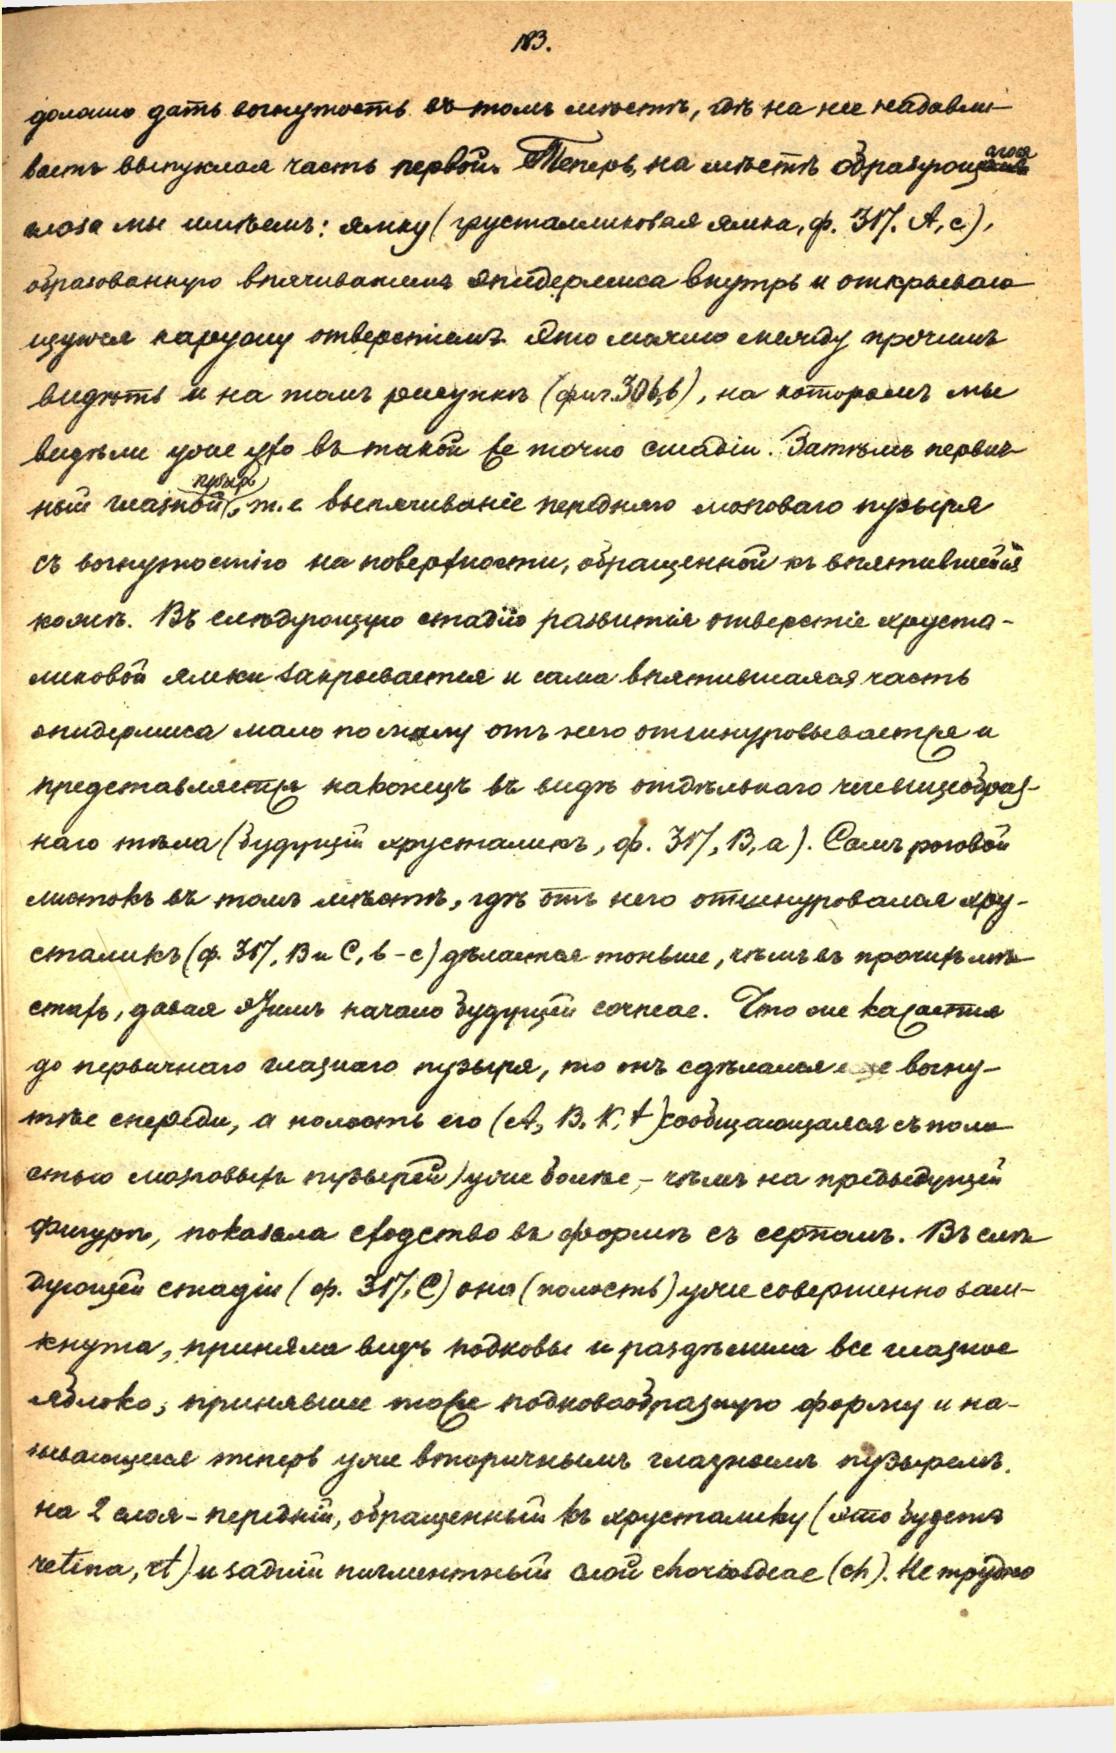 183.
должно дать вогнутость въ томъ мѣстѣ, гдѣ на нее надавли-
ваетъ выпуклая часть первой. Теперь, на мѣстѣ образующагося
глаза мы имѣемъ: ямку (хрусталиковая ямка, ф. 317. A, c),
образованную впячиваніемъ эпидермиса внутрь и открываю-
щуюся наружу отверстіемъ. Это можно между прочимъ
видѣть и на томъ рисункѣ (фиг. 306, b), на которомъ мы
видѣли ухо въ такой же точно стадіи. Затѣмъ первич-
ный глазной пузырь, т.е. выпячиваніе передняго мозговаго пузыря
съ вогнутостію на поверхности, обращенной къ впятившейся
кожѣ. Въ слѣдующую стадію развитія отверстіе хруста-
ликовой ямки закрывается и сама впятившаяся часть
эпидермиса мало по малу отъ него отшнуровывается и
представляется наконецъ въ видѣ отдѣльнаго чечевицеобраз-
наго тѣла (будущій хрусталикъ, ф. 317, B, a). Самъ роговой
листокъ въ томъ мѣстѣ, гдѣ отъ него отшнуровался хру-
сталикъ (ф. 317, B и C, b-c) дѣлается тоньше, чѣмъ въ прочихъ мѣ-
стахъ, давая этимъ начало будущей corneae. Что же касается
до первичнаго глазнаго пузыря, то онъ сдѣлался еще вогну-
тѣе спереди, а полость его (A, B, K, t) сообщающаяся съ поло-
стью мозговыхъ пузырей) уже болѣе, – чѣмъ на предыдущей
фигурѣ, показала сходство въ формѣ съ серпомъ. Въ слѣ-
дующей стадіи (ф. 317, C) она (полость) уже совершенно зам-
кнута, приняла видъ подковы и раздѣлила все глазное
яблоко, принявшее тоже подковообразную форму и на-
зывающееся теперь уже вторичнымъ глазнымъ пузыремъ,
на 2 слоя – передній, обращенный къ хрусталику (это будетъ
retina, rt) и задній пигментный слой chorioideae (ch). Не трудно